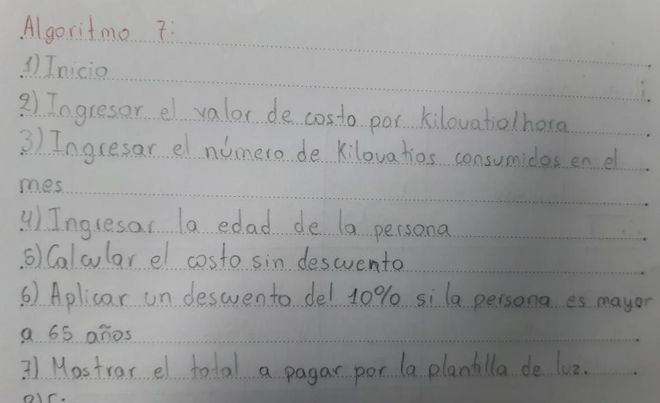 Algoritmo 7:
1) Inicio
2) Ingresar el valor de costo por kilovatio/hora
3) Ingresar el número de kilovatios consumidos en el
mes
4) Ingresar la edad de la persona
5) Calcular el costo sin descuento
6) Aplicar un descuento del 10% si la persona es mayor
a 65 años
7) Mostrar el total a pagar por la plantilla de luz.